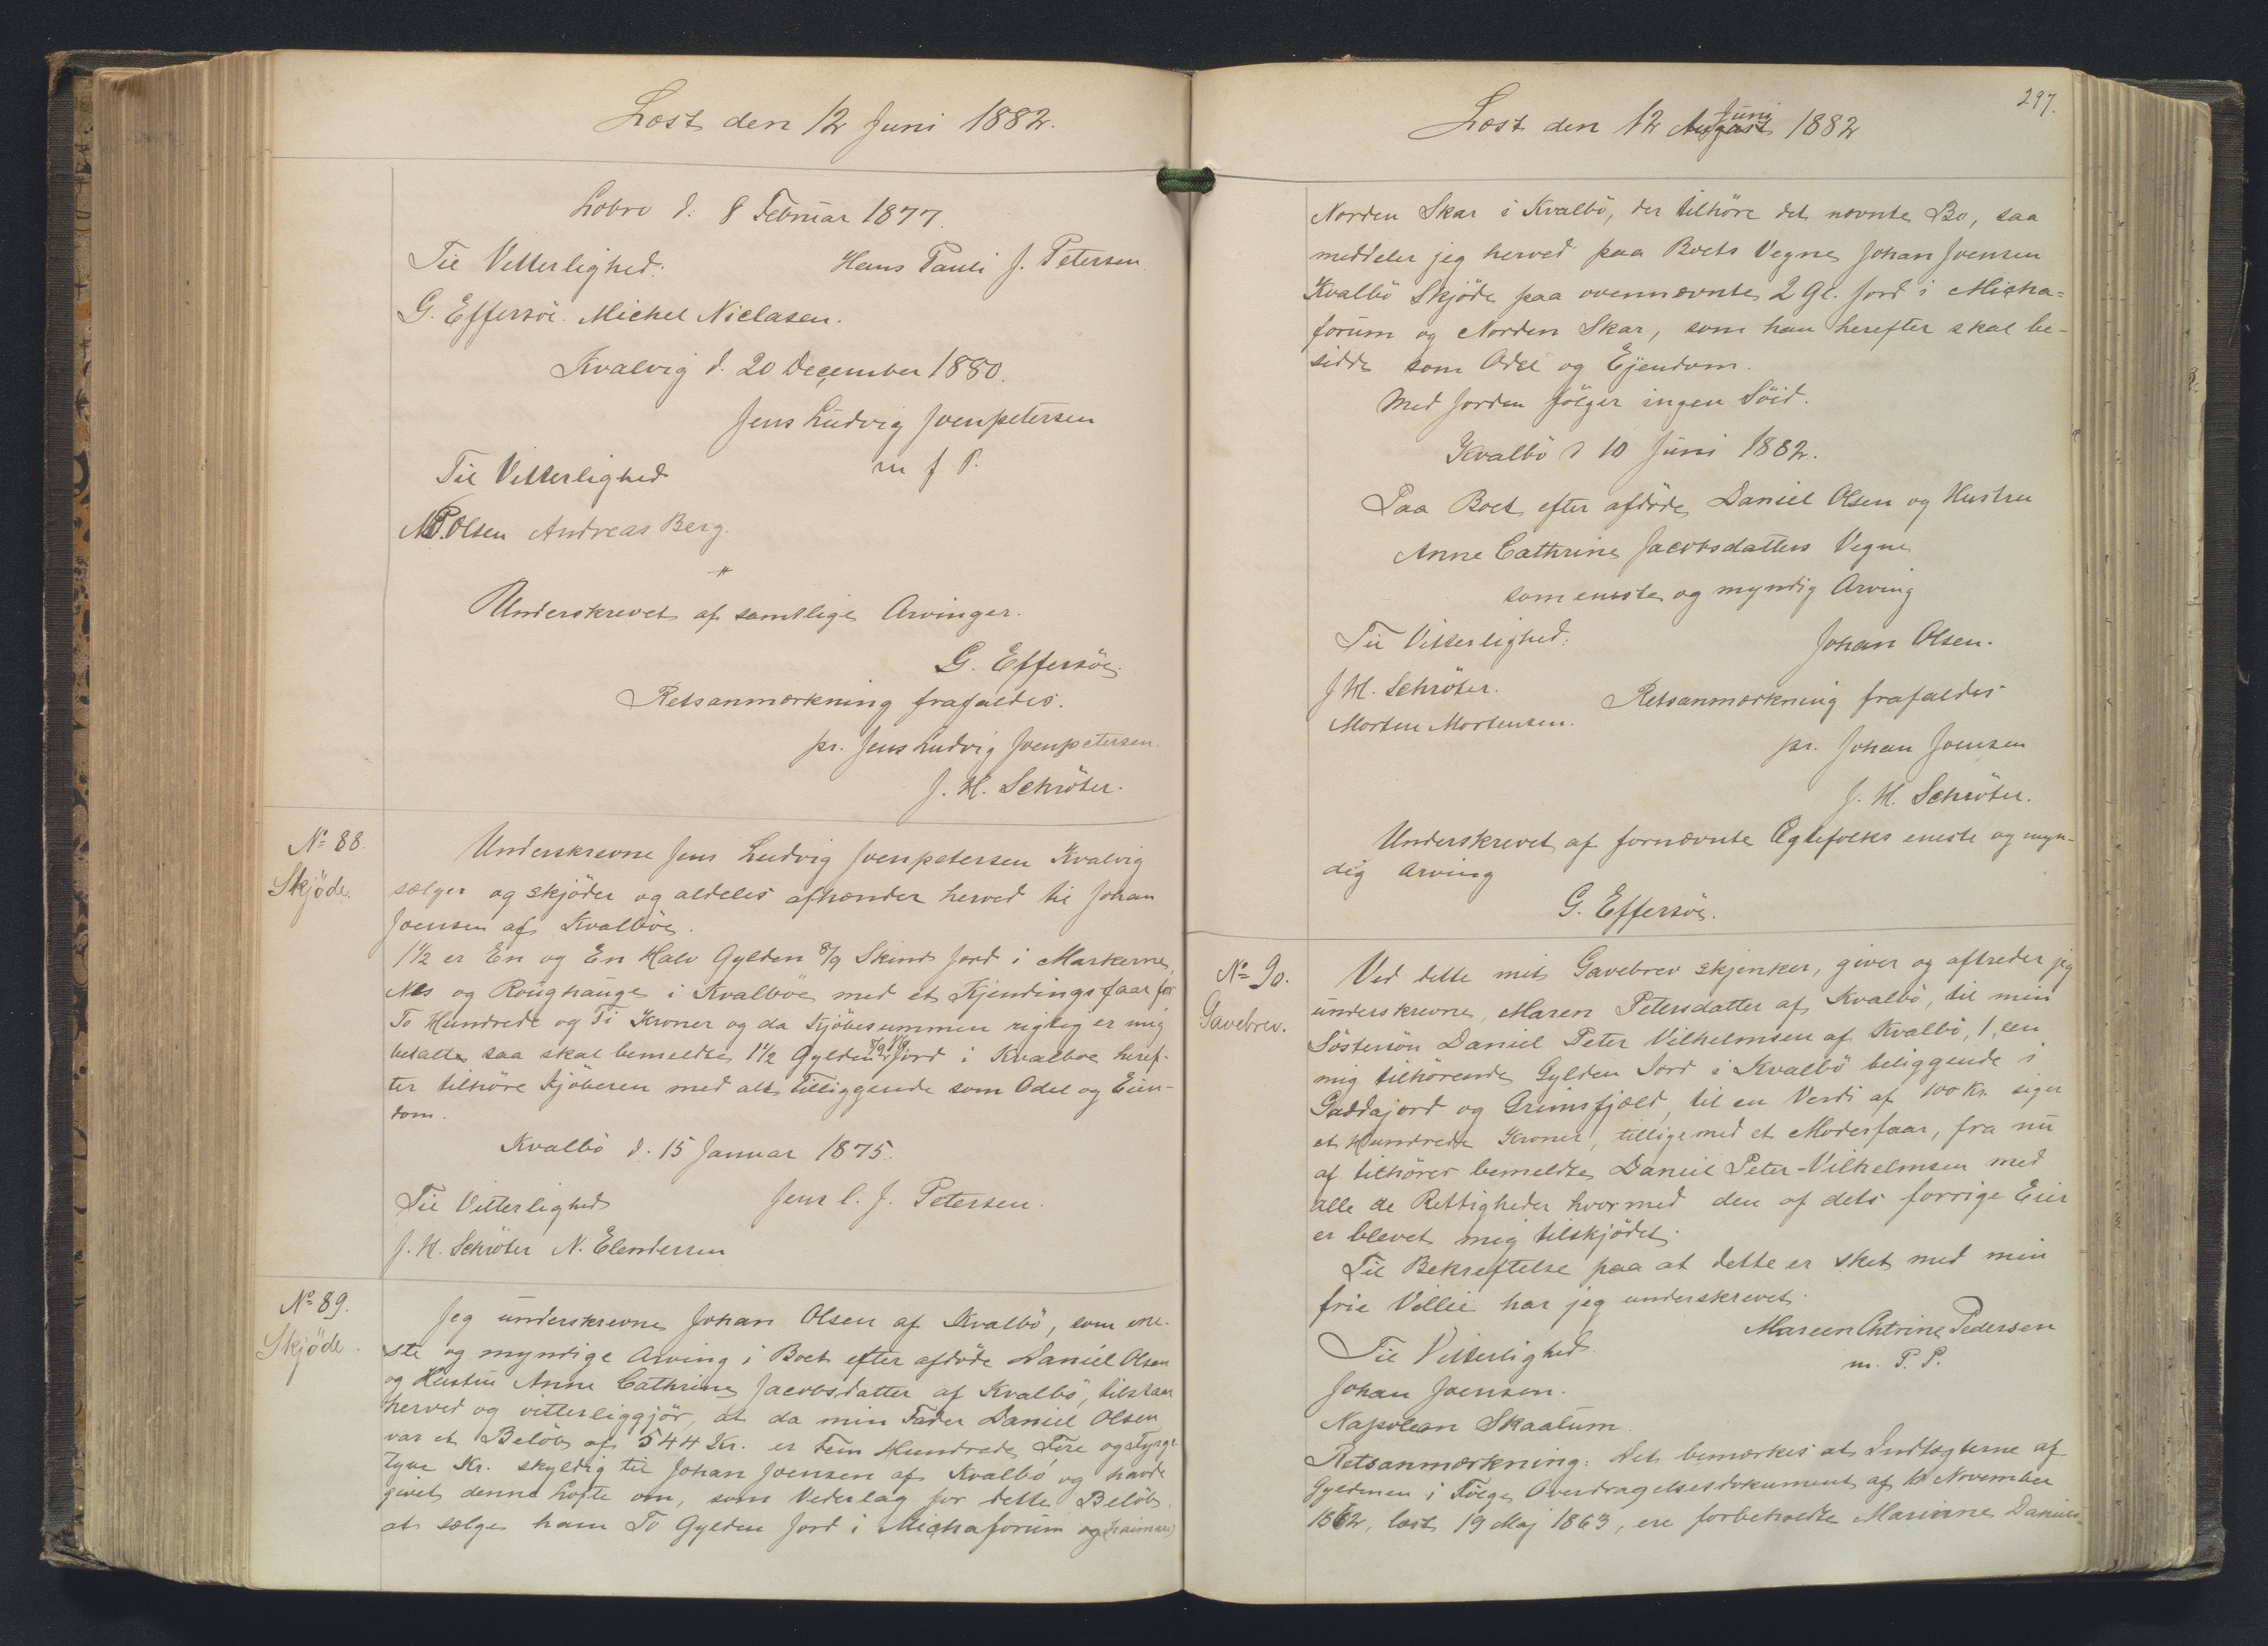 Læst den 12 Juni 1882.
Lobro d. 8 Februar 1877.
Til Vitterlighed: Hans Pauli J. Petersen.
G. Effersöe. Michel Niclasen.
Kvalvig d. 20 December 1880.
Jens Ludvig Joenpetersen
m f P.
Til Vitterlighed
M.P. Olsen Andreas Berg.
Underskrevet af samtlige Arvinger.
G. Effersöe.
Retsanmærkning frafaldes.
pr. Jens Ludvig Joenpetersen.
J. H. Schröter.
No 88.
Skjöde.
Underskrevne Jens Ludvig Joenpetersen Kvalvig
sælger og skjöder og aldeles afhænder herved til Johan
Joensen af Kvalböe.
1½ er En og En Halv Gylden 8/9 Skind Jord i Markerne,
Nes og Roughauge i Kvalböe med et Kjendingsfaar for
To Hundrede og Ti Kroner og da Kjöbesummen rigtig er mig
betalte saa skal bemeldte 1½ Gylden Jord i Kvalboe heref-
ter tilhöre Kjöberen med alt Tilliggende som Odel og Eien-
dom.
Kvalbö d. 15 Januar 1875.
Til Vitterlighed Jens l. J. Petersen.
J. H. Schröter N. Elendersen
No 89.
Skjöde.
Jeg underskrevne Johan Olsen af Kvalbö, som ene-
ste og myndige Arving i Boet efter afdöde Daniel Olsen
og Hustru Anne Cathrine Jacobsdatter af Kvalbö, tilstaar
herved og vitterliggjör, at da min Fader Daniel Olsen
var et Belöb af 544 Kr. er Fem Hundrede Fire og Fyrge-
tyve Kr. skyldig til Johan Joensen af Kvalbö, og havde
givet denne Lofte om, som Vederlag for dette Belöb,
at sælge ham To Gylden Jord i Michaforum og
297.
Læst den 12 August Juni 1882
Norden Skar i Kvalbö, der tilhöre det nævnte Bo, saa
meddeler jeg herved paa Boets Vegne Johan Joensen
Kvalbö Skjöde paa ovennævnte 2 Gl. Jord i Micha=
forum og Norden Skar, som han herefter skal be-
sidde som Odel og Ejendom.
Med Jorden fölger ingen Söid.
Kvalbö d 10 Juni 1882.
Paa Boet efter afdöde Daniel Olsen og Hustru
Anne Cathrine Jacobsdatters Vegne
som eneste og myndig Arving
Til Vitterlighed: Johan Olsen.
J H. Schröter.
Morten Mortensen. Retsanmærkning frafaldes
pr. Johan Joensen
J. H. Schröter.
Underskrevet af fornævnte Ægtefolks eneste og myn-
dig Arving
G. Effersöe.
No 90.
Gavebrev.
Ved dette mit Gavebrev skjenker, giver og aftreder jeg
underskrevne, Maren Petersdatter af Kvalbö, til min
Söstersön Daniel Peter Vilhelmsen af Kvalbö, 1, een
mig tilhörende Gylden Jord i Kvalbö beliggende i
Gaddajord og Grimsfjæld, til en Verdi af 100 Kr. siger
et Hundrede Kroner, tilligemed et Moderfaar, fra nu
af tilhörer bemeldte Daniel Peter-Vilhelmsen med
alle de Rettigheder hvormed den af dets forrige Eier
er blevet mig tilskjödet.
Til Bekreftelse paa at dette er sket med min
frie Villie har jeg underskrevet.
Mareen Chtrine Pedersen
m. P. P.
Til Vitterlighed.
Johan Joensen.
Napolean Skaalum
Retsanmærkning: Det bemærkes at Indtægterne af
Gyldenen i Fölge Overdragelsesdokument af November
1862, læst 19 Maj 1863, ere forbeholdte Marianne Daniels-